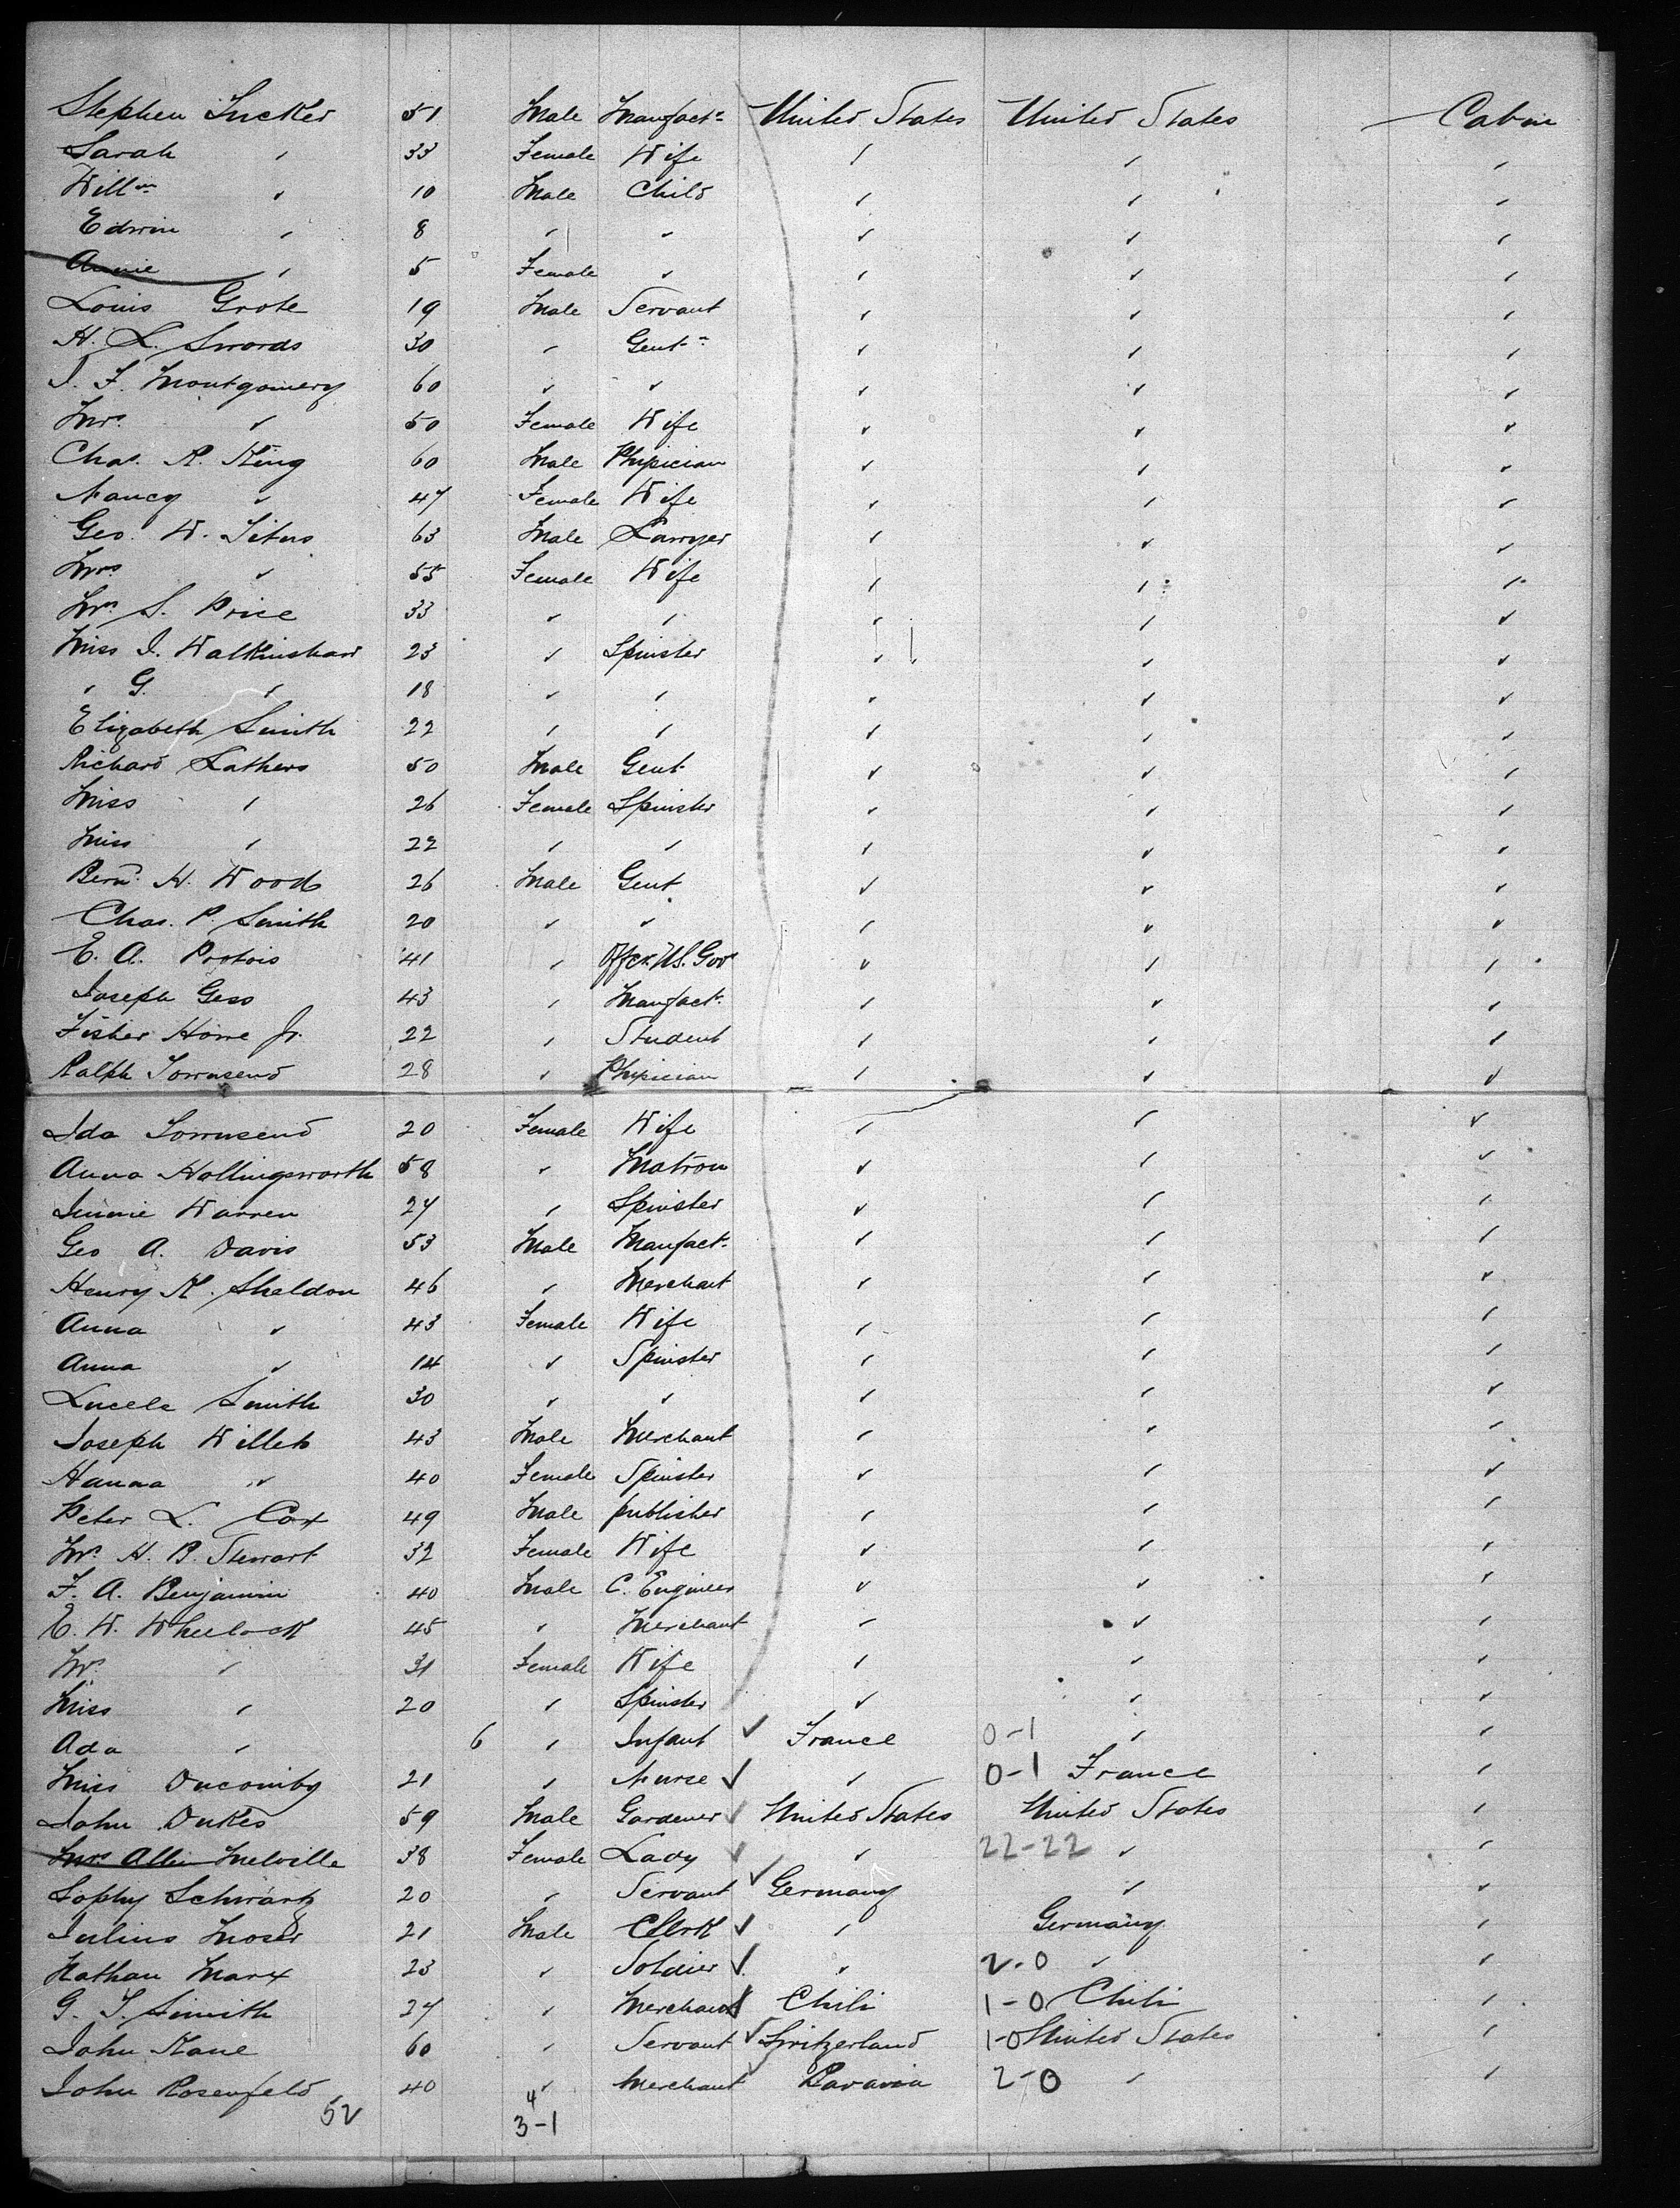 Stephen Tucker 51 Male Manufactr United States United States Cabin
Sarah " 33 Female Wife " " "
Willm " 10 Male Child " " "
Edwin " 8 " " " " "
Annie " 5 Female " " " "
Louis Grote 19 Male Servant " " "
H. L. Swords 30 " Gentn " " "
J. F. Montgomery 60 " " " " "
Mrs " 50 Female Wife " " "
Chas. R. King 60 Male Physician " " "
Nancy " 47 Female Wife " " "
Geo. W. Titus 63 Male Lawyer " " "
Mrs " 55 Female Wife " " "
Mrs S. Price 33 " " " " "
Miss J. Walkinshaw 23 " Spinster " " "
" G. " 18 " " " " "
Elizabeth Smith 22 " " " " "
Richard Lathers 50 Male Gent " " "
Miss " 26 Female Spinster " " "
Miss " 22 " " " " "
Benn. H. Wood 26 Male Gent " " "
Chas. P. Smith 20 " " " " "
E. A. 41 " Offcr. U.S. Govt " " "
Joseph Gess 43 " Manufactr " " "
Fisher Howe Jr. 22 " Student " " "
Ralph Townsend 28 " Physician " " "
Ida Townsend 20 Female Wife " " "
Anna Hollingsworth 58 " Matron " " "
Jennie Warren 27 " Spinster " " "
Geo A. Davis 53 Male Manufactr " " "
Henry K. Sheldon 46 " Merchant " " "
Anna " 43 Female Wife " " "
Anna " 14 " Spinster " " "
Lucele Smith 30 " " " " "
Joseph Willets 43 Male Merchant " " "
Hanna " 40 Female Spinster " " "
Peter L. Cox 49 Male publisher " " "
Mrs H. B. Stewart 32 Female Wife " " "
F. A. Benjamin 40 Male C. Engineer " " "
E. W. Wheelock 45 " Merchant " " "
Mrs " 31 Female Wife " " "
Miss " 20 " Spinster " " "
Ada " 6 " Infant ✓ France 0-1 " "
Miss 21 " Nurse ✓ " 0-1 France "
John Dukes 59 Male Gardener ✓ United States United States "
Mrs Allen Melville 38 Female Lady ✓ " 22-22 " "
Sophy Schwartz 20 " Servant ✓ Germany " "
Julius Moser 21 Male Clerk ✓ " Germany "
Nathan Marx 23 " Soldier ✓ " 2-0 " "
G. T. Smith 27 " Merchant ✓ Chili 1-0 Chili "
John Kane 60 " Servant ✓ Switzerland 1-0 United States "
John Rosenfeld 40 " Merchant ✓ Bavaria 2-0 " "
52 4
3-1